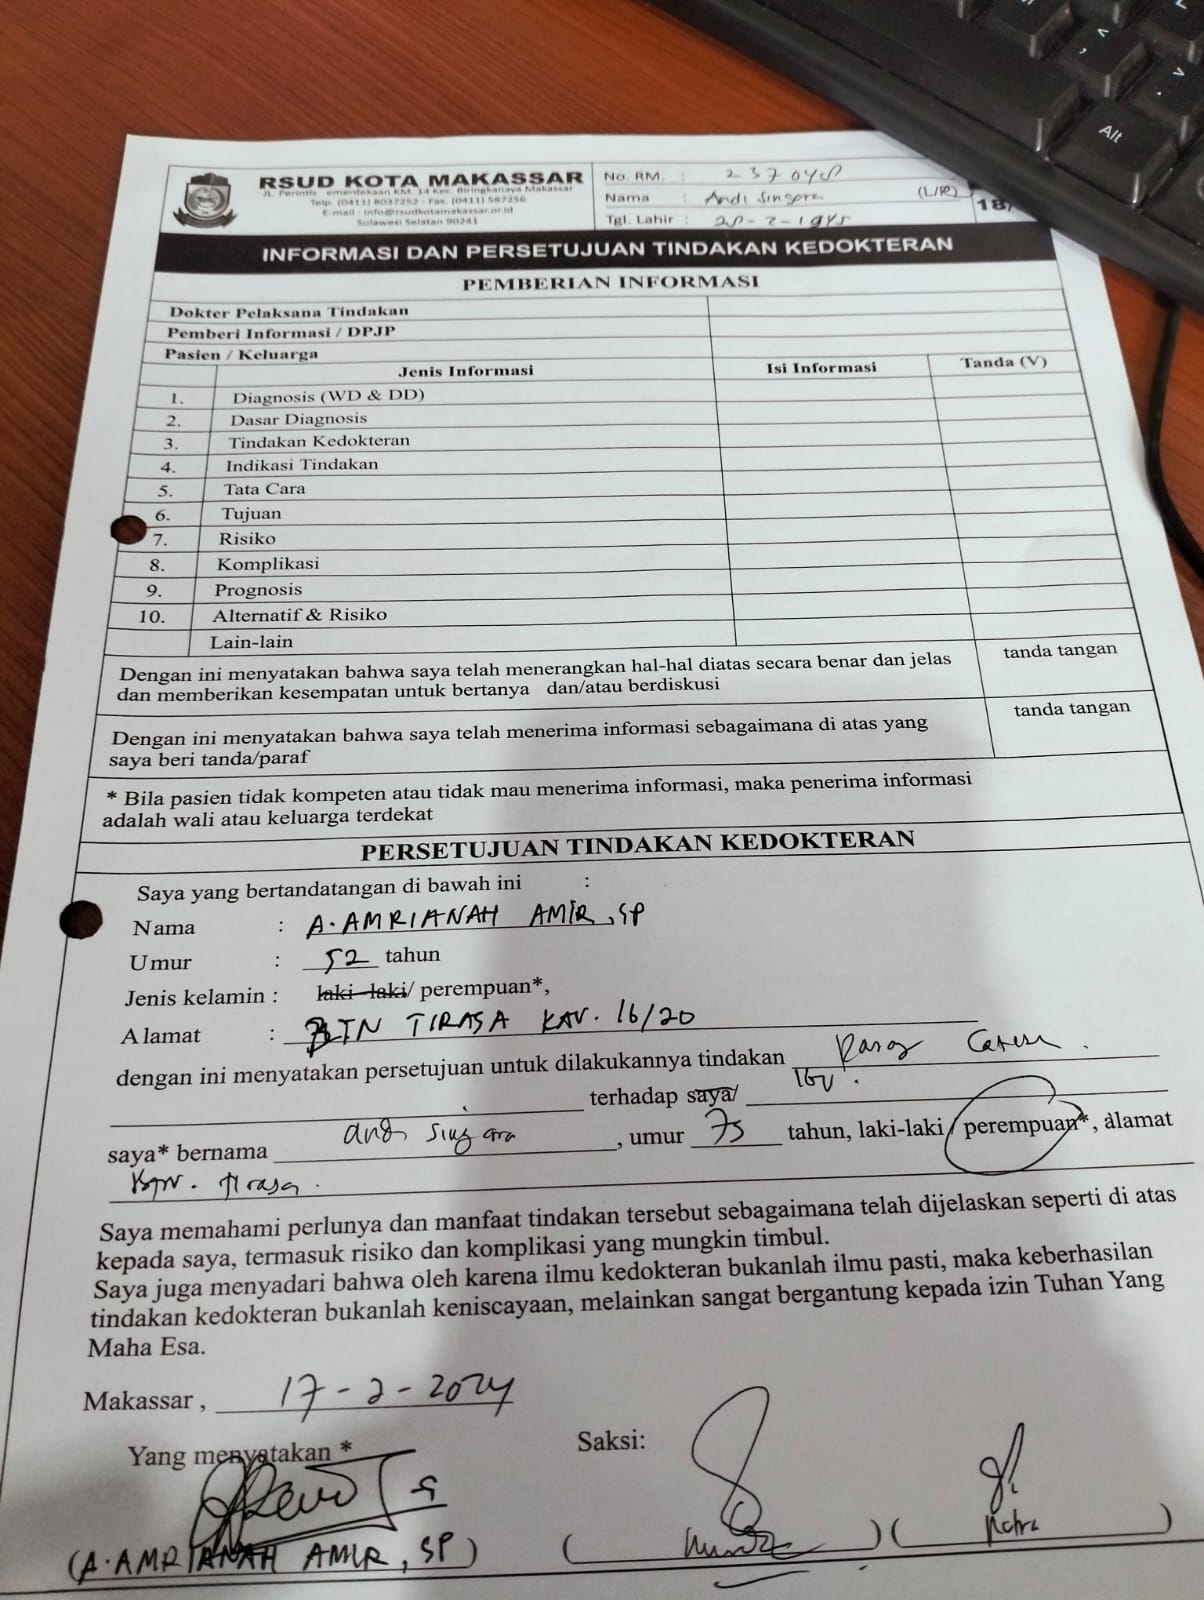 RSUD KOTA MAKASSAR
JL. Perintis emerdekaan KM. 14 Kec. Biringkanaya Makassar
Telp. (0411) 8037252 - Fax. (0411) 587256
E-mail : info@rsudkotamakassar.or.id
Sulawesi Selatan 90241
No. RM. :
Nama : Andi Singara (L/P)
Tgl. Lahir :
18/
INFORMASI DAN PERSETUJUAN TINDAKAN KEDOKTERAN
PEMBERIAN INFORMASI
Dokter Pelaksana Tindakan
Pemberi Informasi / DPJP
Pasien / Keluarga
Jenis Informasi Isi Informasi Tanda (V)
1. Diagnosis (WD & DD)
2. Dasar Diagnosis
3. Tindakan Kedokteran
4. Indikasi Tindakan
5. Tata Cara
6. Tujuan
7. Risiko
8. Komplikasi
9. Prognosis
10. Alternatif & Risiko
Lain-lain
Dengan ini menyatakan bahwa saya telah menerangkan hal-hal diatas secara benar dan jelas tanda tangan
dan memberikan kesempatan untuk bertanya dan/atau berdiskusi
Dengan ini menyatakan bahwa saya telah menerima informasi sebagaimana di atas yang tanda tangan
saya beri tanda/paraf
* Bila pasien tidak kompeten atau tidak mau menerima informasi, maka penerima informasi
adalah wali atau keluarga terdekat
PERSETUJUAN TINDAKAN KEDOKTERAN
Saya yang bertandatangan di bawah ini :
Nama : A. AMRIANAH AMIR, SP
Umur : 52 tahun
Jenis kelamin : laki-laki/ perempuan*,
Alamat : BTN TIRASA KAV. 16/20
dengan ini menyatakan persetujuan untuk dilakukannya tindakan
terhadap saya/ Ibu
saya* bernama andi singara , umur 75 tahun, laki-laki / perempuan*, alamat
tirasa.
Saya memahami perlunya dan manfaat tindakan tersebut sebagaimana telah dijelaskan seperti di atas
kepada saya, termasuk risiko dan komplikasi yang mungkin timbul.
Saya juga menyadari bahwa oleh karena ilmu kedokteran bukanlah ilmu pasti, maka keberhasilan
tindakan kedokteran bukanlah keniscayaan, melainkan sangat bergantung kepada izin Tuhan Yang
Maha Esa.
Makassar , 17-2-2024
Yang menyatakan * Saksi:
(A. AMRIANAH AMIR, SP) ( ) ( )
Alt